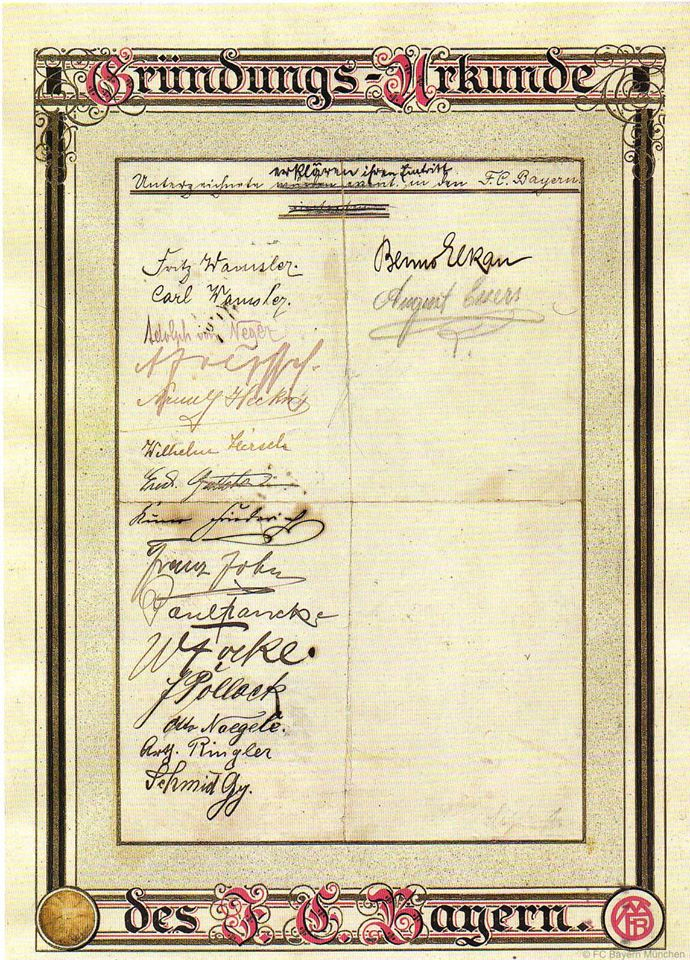 Gründungs-Urkunde
erklären ihren Eintritt
Unterzeichnete in den F.C. Bayern.
Fritz Wamsler.
Carl Wamsler.
Adolph von Neger
Wilhelm Hirsch
Kuno Friederich
Franz John
Paul Francke
W Focke.
J Pollack
Otto Naegele.
Arth. Ringler
Schmid Gg.
Benno Elkan
August Evers
des F. C. Bayern.
© FC Bayern München